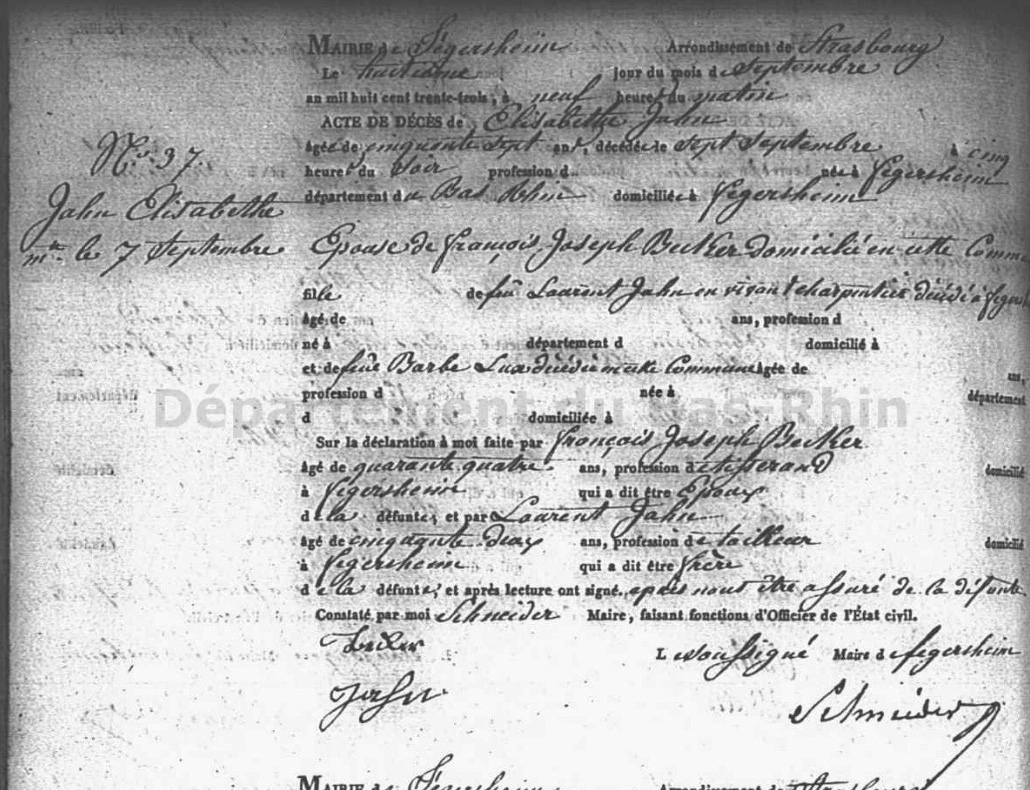 MAIRIE de Fegersheim Arrondissement de Strasbourg
Le huitieme jour du mois de Septembre
an mil huit cent trente-trois, à neuf heures du matin
ACTE DE DÉCÈS de Elisabethe Jahn
âgée de cinquante sept ans, décédée le sept Septembre à cinq
heures du Soir profession d née à Fegersheim
département du Bas Rhin domiciliée à Fegersheim
N° 37.
Jahn Elisabethe
mte le 7 Septembre
Epouse de françois Joseph Becker domicilié en cette Comm
fille de feu Laurent Jahn en vivant charpentier décédé à feger
âgé de ans, profession d
né à département d domicilié à
et de feue Barbe Lux décédée en cette Commune âgée de ans,
profession d née à département
d domiciliée à
Département du Bas-Rhin
Sur la déclaration à moi faite par françois Joseph Becker
âgé de quarante quatre ans, profession de tisserand domicilié
à fegersheim qui a dit être Epoux
de la défunte, et par Laurent Jahn
âgé de cinquante deux ans, profession de tailleur domicilié
à fegersheim qui a dit être frère
de la défunte, et après lecture ont signé, après nous être assuré de la défunte
Constaté par moi Schneider Maire, faisant fonctions d'Officier de l'État civil.
Becker
L esoussigné Maire de fegersheim
Jahn
Schneider
MAIRIE de Fegersheim Arrondissement de Strasbourg